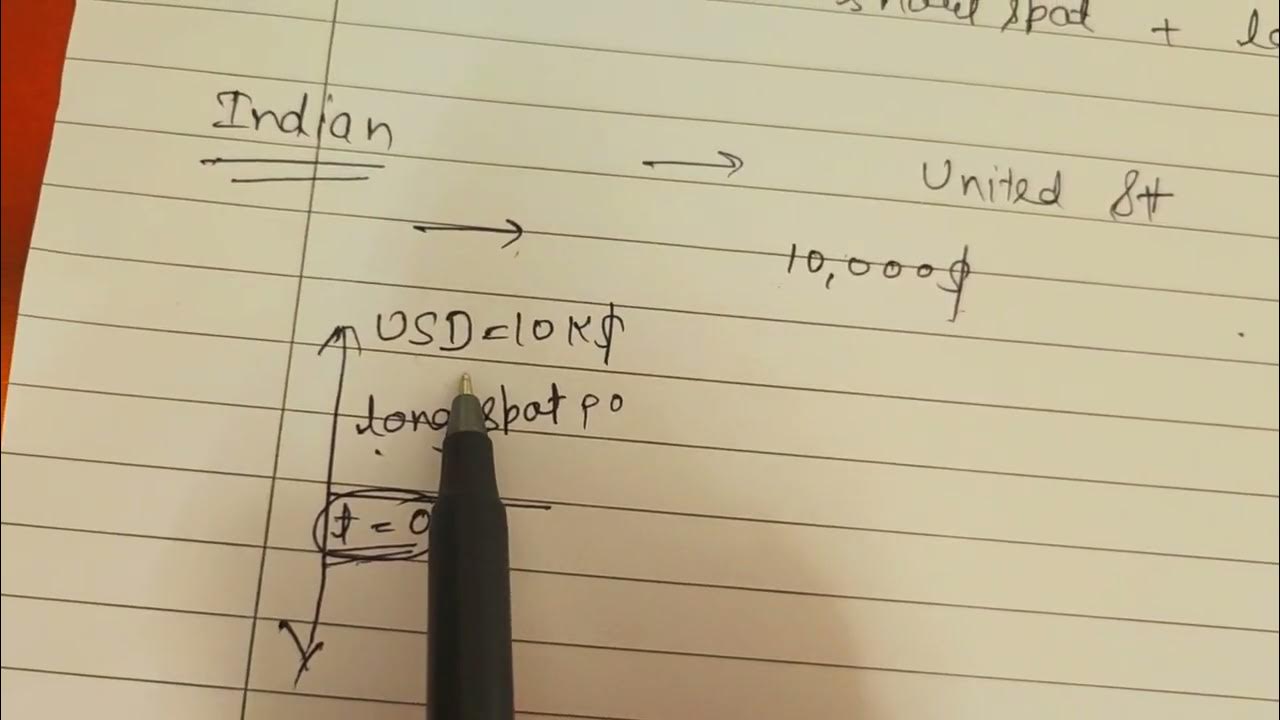 spot + lo
Indian
→ United St
→ 10,000$
USD = 10K$
long spot po
t = 0